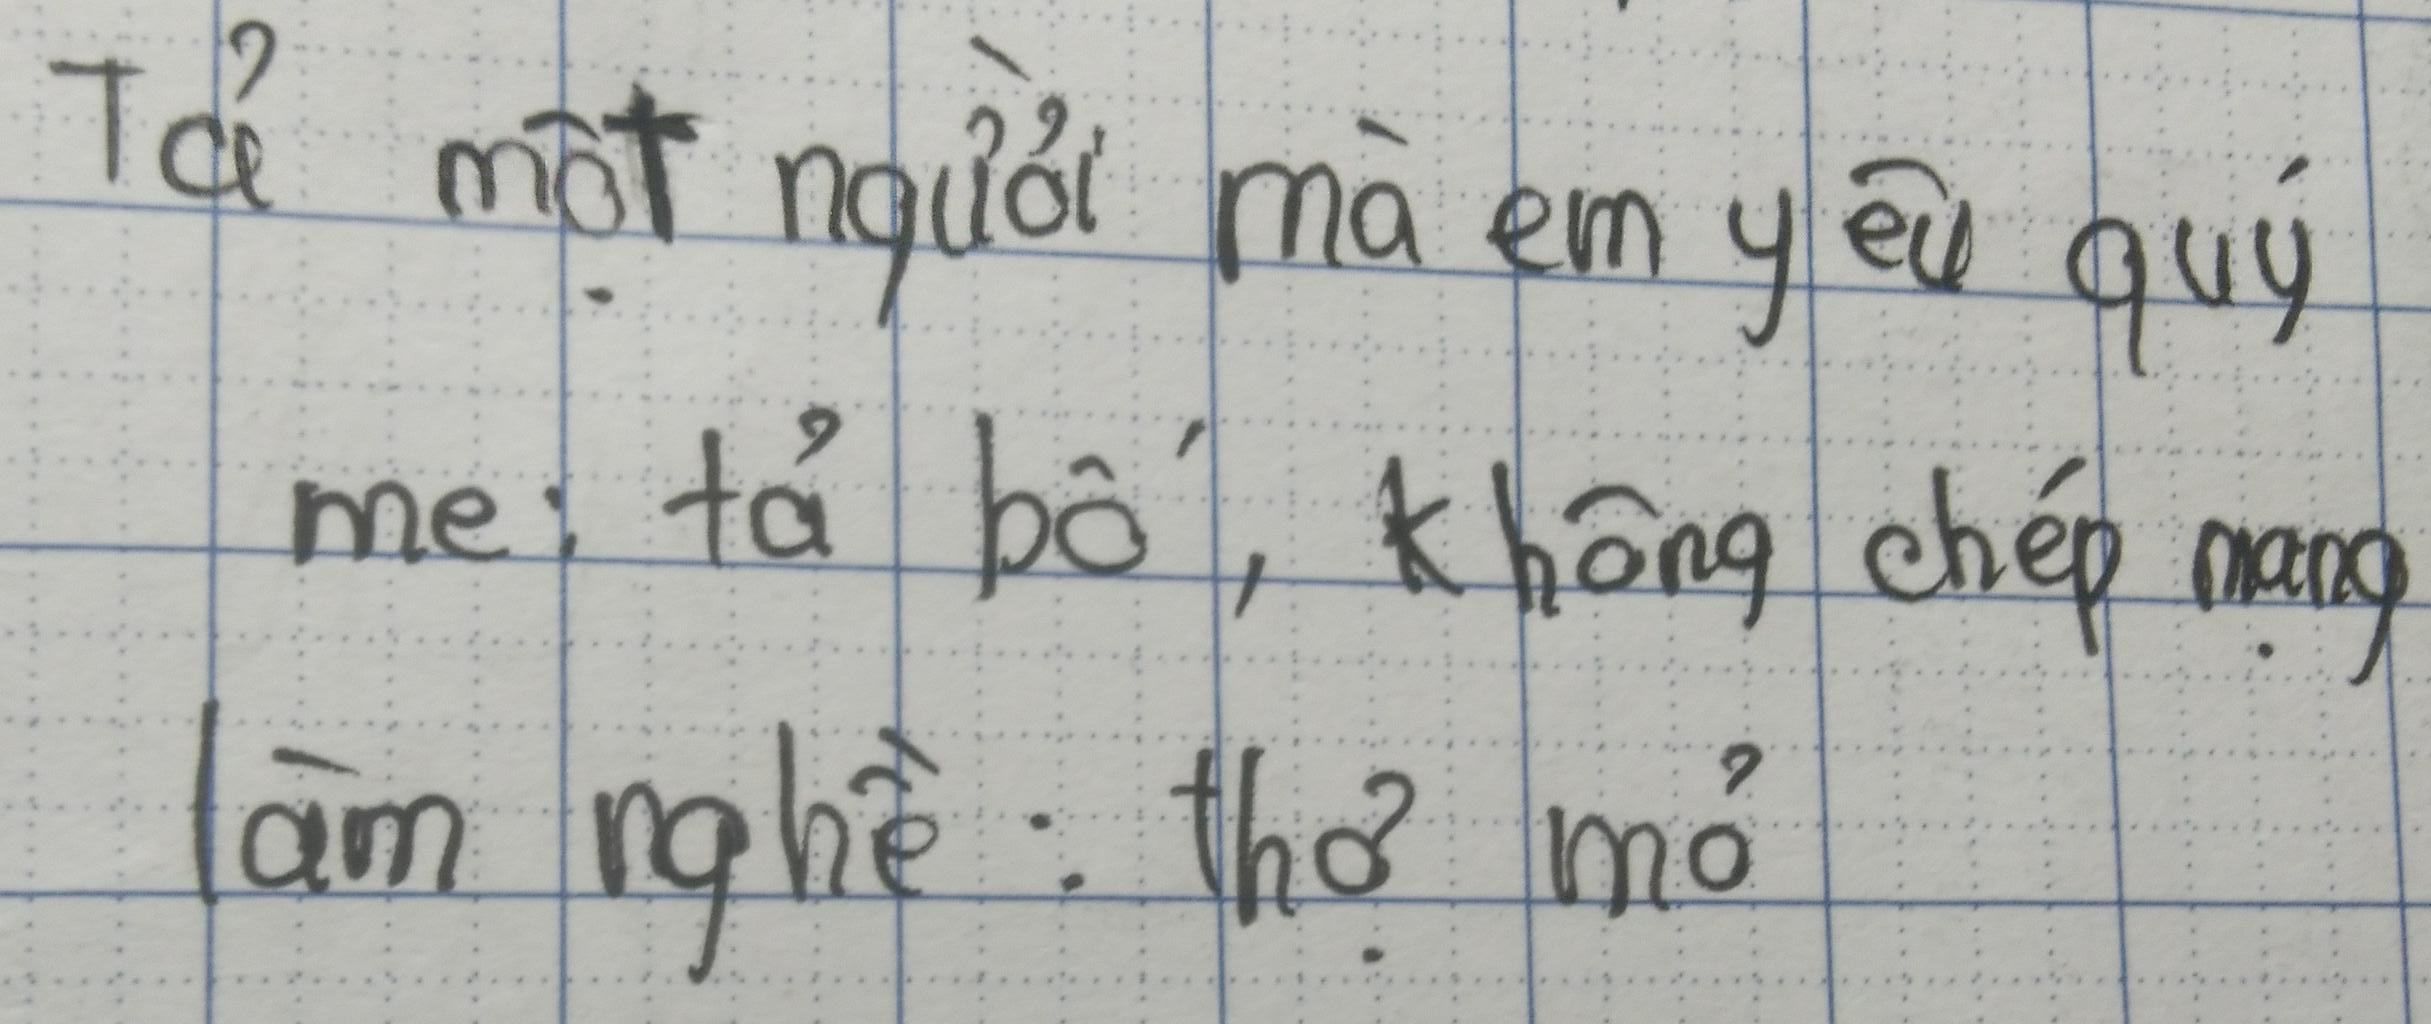 Tả một người mà em yêu quý
me: tả bố, không chép mạng
làm nghề: thợ mỏ